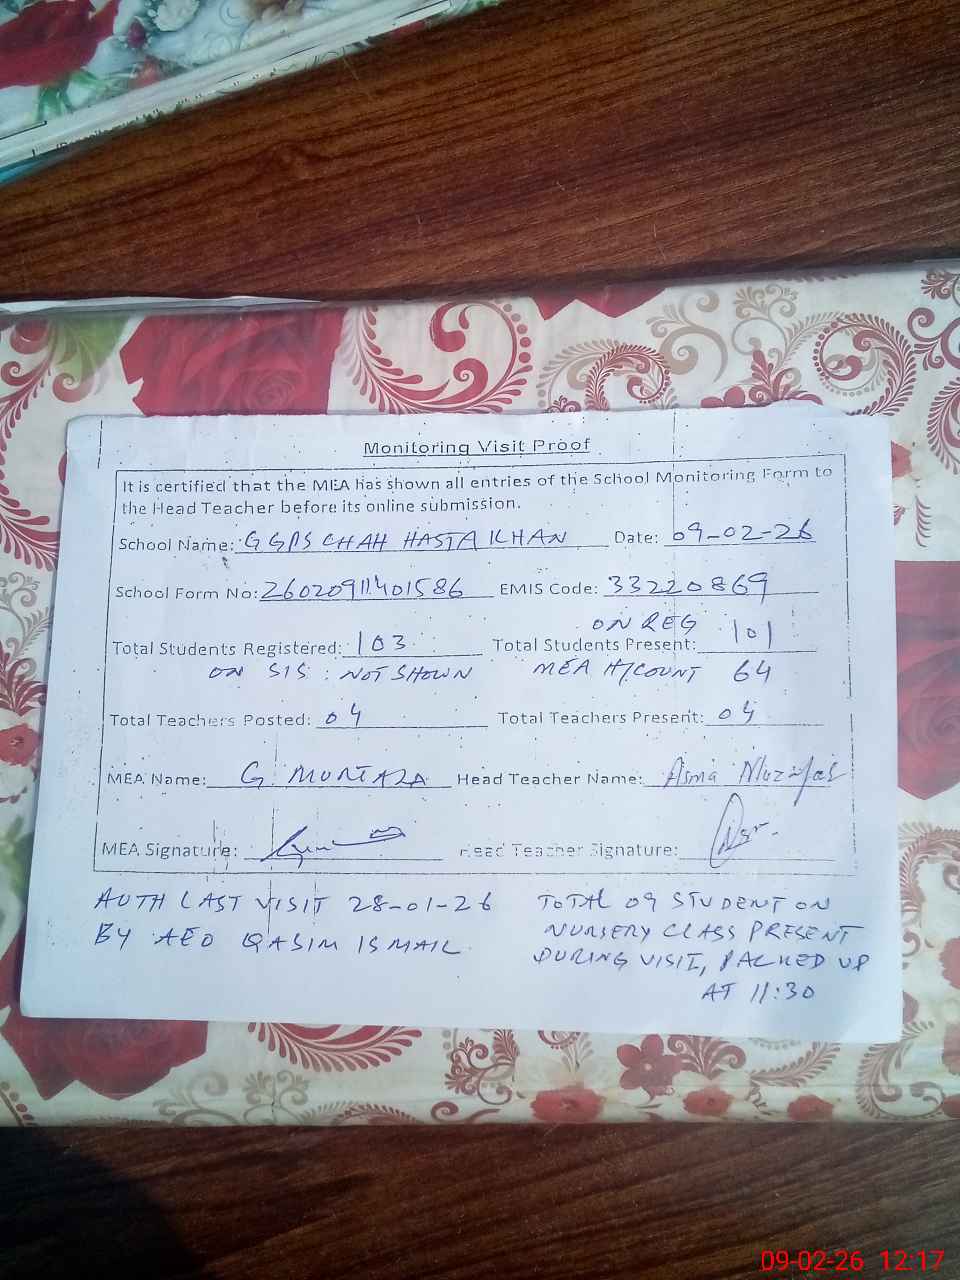 Monitoring Visit Proof
It is certified that the MEA has shown all entries of the School Monitoring Form to
the Head Teacher before its online submission.
School Name: GGPS CHAH HASTA KHAN Date: 09-02-26
School Form No: 26020911401586 EMIS Code: 33220869
ON REG
Total Students Registered: 103 Total Students Present: 101
ON SIS : NOT SHOWN MEA H/COUNT 64
Total Teachers Posted: 04 Total Teachers Present: 04
MEA Name: G. MURTAZA Head Teacher Name: Asma Muzaffar
MEA Signature: Head Teacher Signature:
AUTH LAST VISIT 28-01-26
BY AEO QASIM ISMAIL
TOTAL 09 STUDENT ON
NURSERY CLASS PRESENT
DURING VISIT, PACKED UP
AT 11:30
09-02-26 12:17